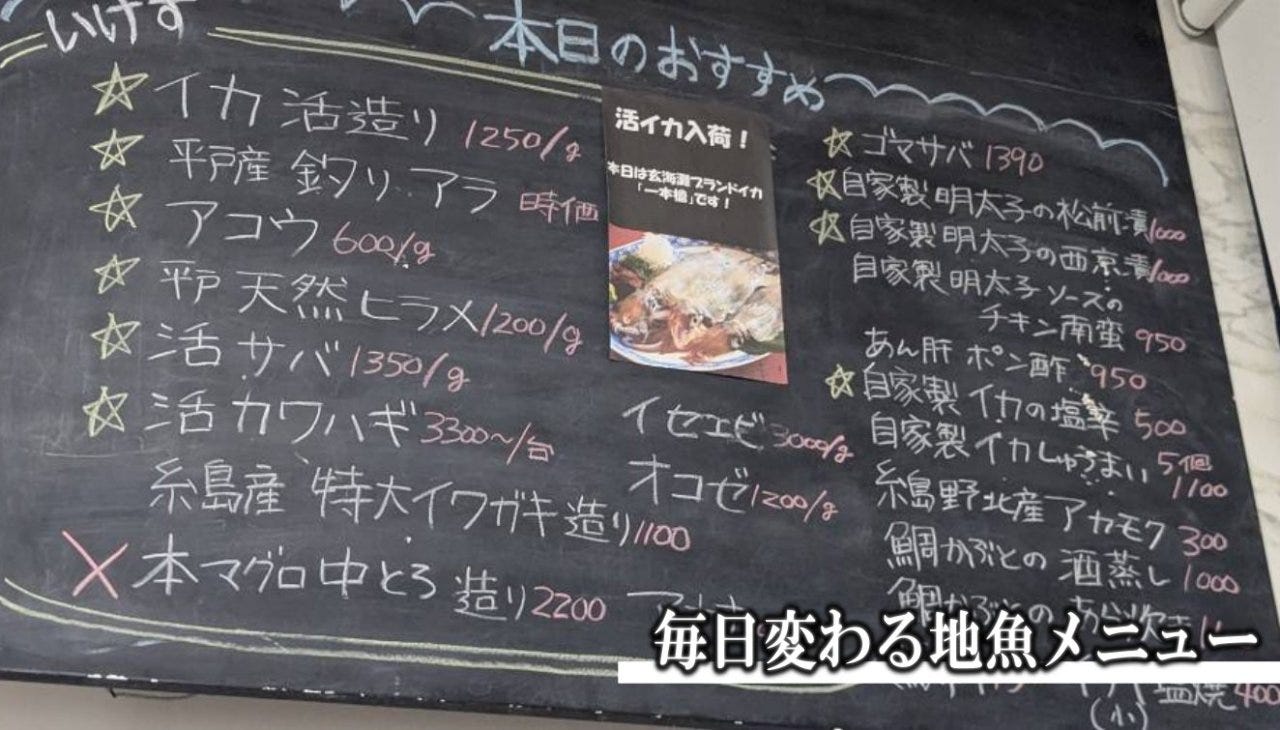 いけす
本日のおすすめ
☆イカ 活造り 1250/g
☆平戸産 釣り アラ 時価
☆アコウ 600/g
☆平戸 天然ヒラメ 1200/g
☆活サバ 1350/g
☆活カワハギ 3300~/台
糸島産 特大イワガキ造り 1100
×本マグロ中とろ 造り 2200
活イカ入荷！
本日は玄海灘ブランドイカ
「一本槍」です！
イセエビ 3000/g
オコゼ 1200/g
☆ゴマサバ 1390
☆自家製 明太子の松前漬 1000
☆自家製 明太子の西京漬 1000
自家製 明太子ソースの
チキン南蛮 950
あん肝 ポン酢 950
☆自家製 イカの塩辛 500
自家製 イカしゅうまい 5個
1100
糸島野北産アカモク 300
鯛かぶとの 酒蒸し 1000
鯛かぶとの あら炊き
塩焼 400
(小)
毎日変わる地魚メニュー